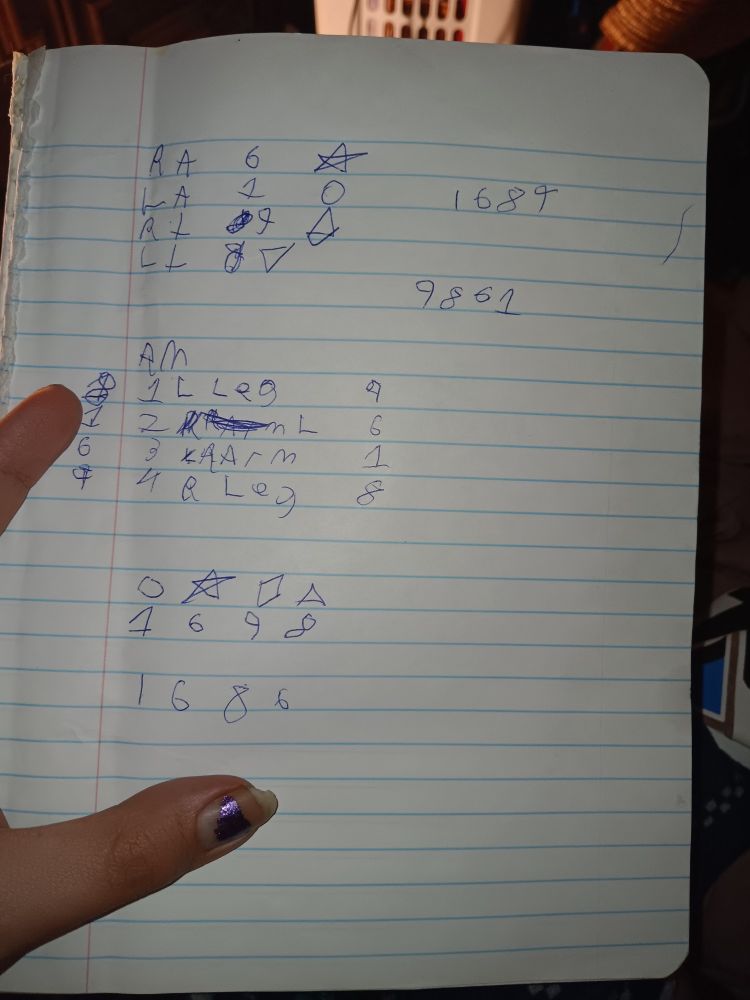 RA 6
LA 1
1689
RL 9
LL 8
9861
AM
1 L Leg 9
1 2 L 6
6 3 RArm 1
9 4 R Leg 8
1 6 9 8
1 6 8 6